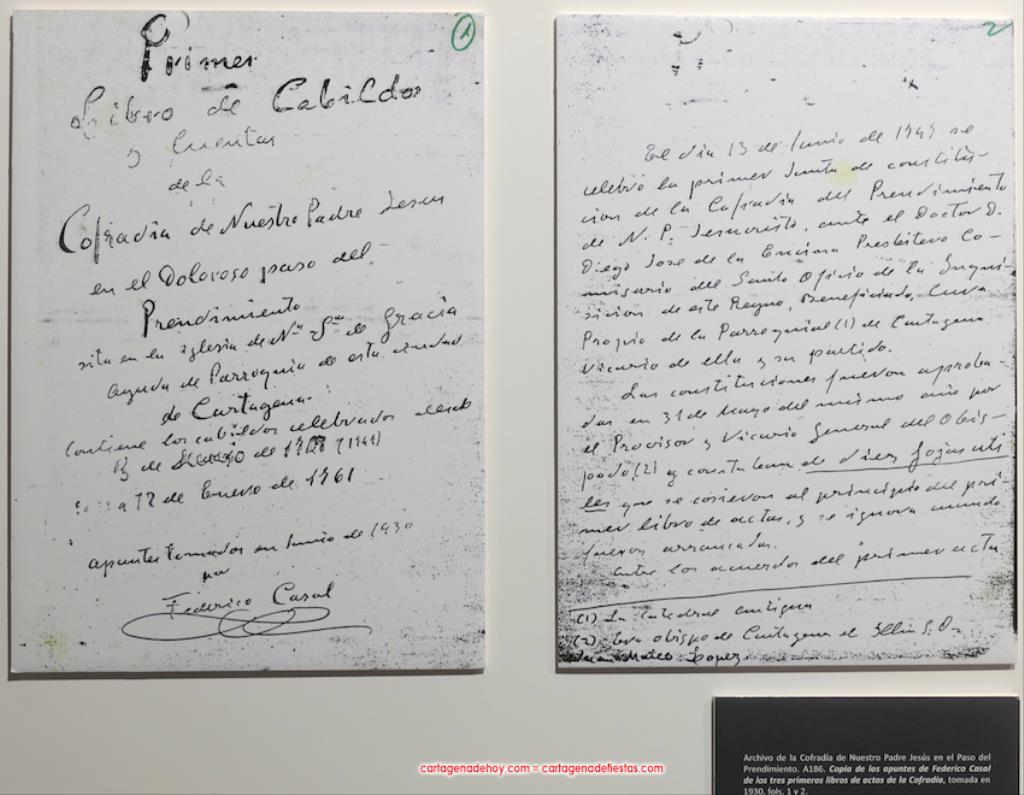 1
Primer
Libro de Cabildos
y Cuentas
de la
Cofradia de Nuestro Padre Jesus
en el Doloroso paso del
Prendimiento
sita en la iglesia de Nª Sª de Gracia
ayuda de Parroquia de esta ciudad
de Cartagena.
Contiene los cabildos celebrados desde
13 de de (1949)
a 12 de Enero de 1961
apuntes tomados en Junio de 1930
por
Federico Casal
2
El dia 13 de Junio de 1949 se
celebró la primer Junta de constitu-
cion de la Cofradia del Prendimiento
de N. P. Jesucristo, ante el Doctor D.
Diego Jose de la Encina Presbitero Co-
misario del Santo Oficio de la Inqui-
sicion de este Reyno, Beneficiado, Cura
Propio de la Parroquial (1) de Cartagena
Vicario de ella y su partido.
Las constituciones fueron aproba-
das en 31 de Mayo del mismo año por
el Provisor y Vicario General del Obis-
pado (2) y constaban de diez fojas uti
les que se cosieron al principio del pri-
mer libro de actas, y se ignora cuando
fueron arrancadas.
Entre los acuerdos del primer acta
(1) La Catedral antigua
(2) Era obispo de Cartagena el Illmo S. D.
Juan Mateo Lopez.
Archivo de la Cofradía de Nuestro Padre Jesús en el Paso del
Prendimiento. A186. Copia de los apuntes de Federico Casal
de los tres primeros libros de actas de la Cofradía, tomada en
1930, fols. 1 y 2.
cartagenadehoy.com = cartagenadefiestas.com